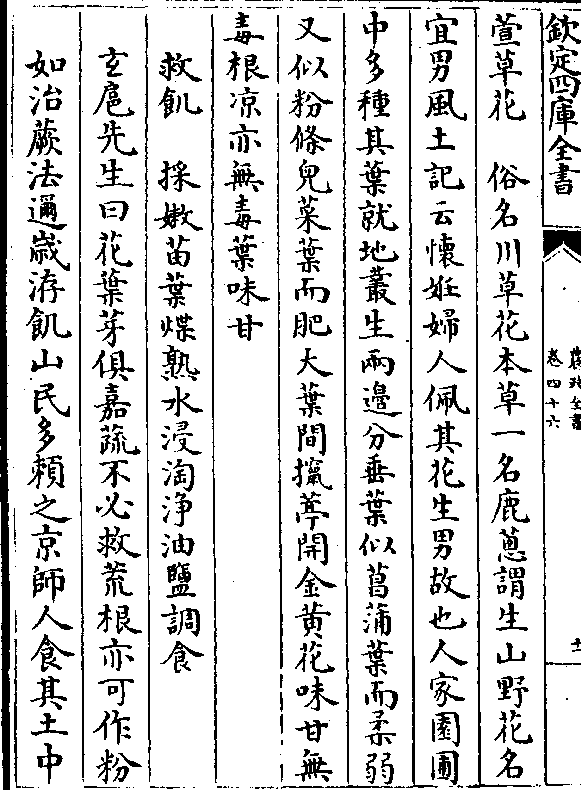 欽定四庫全書
農政全書
卷四十六
萱草花　俗名川草花本草一名鹿蔥謂生山野花名
宜男風土記云懷姙婦人佩其花生男故也人家園圃
中多種其葉就地叢生兩邊分垂葉似菖蒲葉而柔弱
又似粉條兒菜葉而肥大葉間攛葶開金黃花味甘無
毒根凉亦無毒葉味甘
救飢　採嫩苗葉煠熟水浸淘浄油鹽調食
玄扈先生曰花葉芽俱嘉蔬不必救荒根亦可作粉
如治蕨法邇歲洊飢山民多頼之京師人食其土中